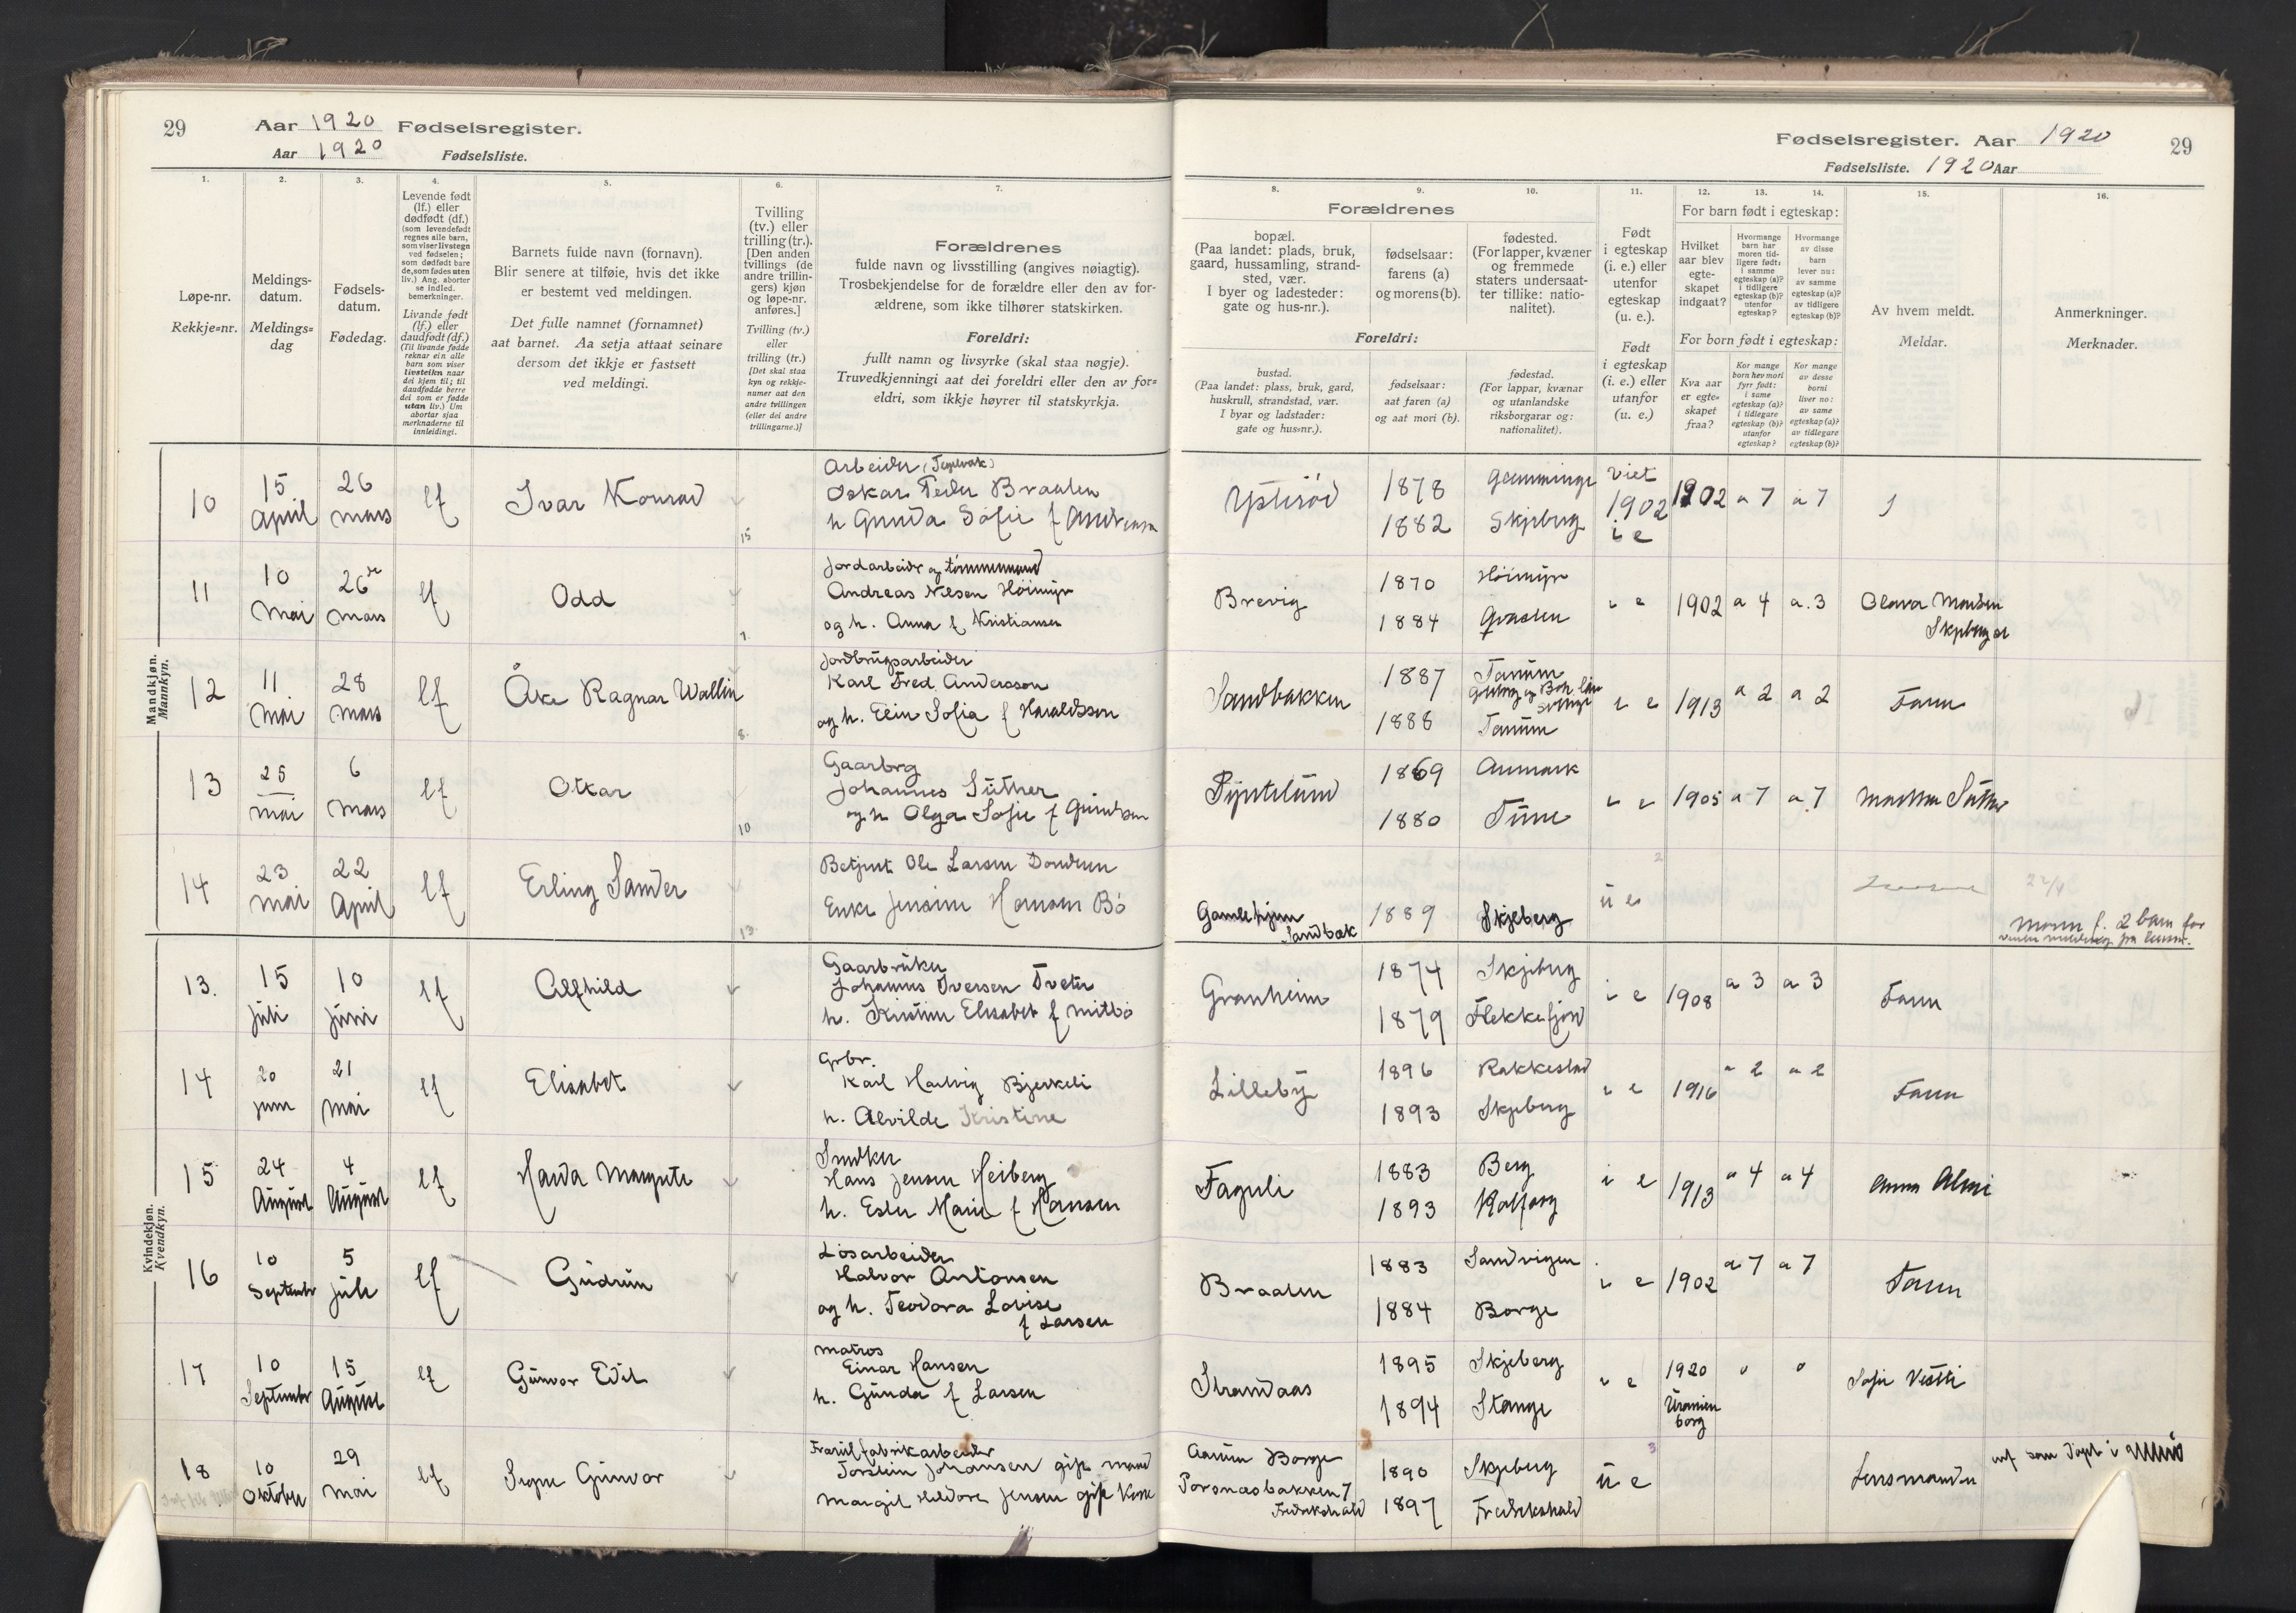 29
Aar 1920 Fødselsregister.
Aar 1920 Fødselsliste.
1.
2.
3.
4.
5.
6.
7.
Løpe-nr.
Rekkje=nr.
Meldings-
datum.
Meldings=
dag
Fødsels-
datum.
Fødedag.
Levende født
(lf.) eller
dødfødt (df.)
(som levendefødt
regnes alle barn,
som viser livstegn
ved fødselen;
som dødfødt bare
de, som fødes uten
liv.) Ang. aborter
se indled.
bemerkninger.
Livande født
(lf.) eller
daudfødt (df.)
(Til livande fødde
reknar ein alle
barn som viser
livsteikn naar
dei kjem til; til
daudfødde berre
dei som er fødde
utan liv.) Um
abortar sjaa
merknaderne til
innleidingi.
Barnets fulde navn (fornavn).
Blir senere at tilføie, hvis det ikke
er bestemt ved meldingen.
Det fulle namnet (fornamnet)
aat barnet. Aa setja attaat seinare
dersom det ikkje er fastsett
ved meldingi.
Tvilling
(tv.) eller
trilling (tr.).
[Den anden
tvillings (de
andre trillin-
gers) kjøn
og løpe-nr.
anføres.]
Tvilling (tv.)
eller
trilling (tr.)
[Det skal staa
kyn og rekkje-
numer aat den
andre tvillingen
(eller dei andre
trillingarne.)]
Forældrenes
fulde navn og livsstilling (angives nøiagtig).
Trosbekjendelse for de forældre eller den av for-
ældrene, som ikke tilhører statskirken.
Foreldri:
fullt namn og livsyrke (skal staa nøgje).
Truvedkjenningi aat dei foreldri eller den av for=
eldri, som ikkje høyrer til statskyrkja.
Mandkjøn.
Mannkyn.
10 15 April 26 mars lf Ivar Konrad 15
Arbeider
Oskar Peder Braaten
h Gunda Sofie f Andersen
11 10 Mai 26 mars lf Odd 7.
Jordarbeider og tømmermand
Andreas Nilsen Höimyr
og h. Anna f Kristiansen
12 11. Mai 28 mars lf Åke Ragnar Wallin 8.
Jordbrugsarbeider
Karl Fred. Andersson
og h. Elin Sofia f Haraldsson
13 25 mai 6 Mars lf Otkar 10
Gaarbrg
Johannes Sütner
og h Olga Sofie f Gundersen
14 23 mai 22 April lf Erling Sander 13.
Ole Larsen
Enke Jensine Hansen Bö
Kvindekjøn.
Kvendkyn.
13. 15 juli 10 juni lf Alfhild
Gaarbruker
Johannes Iversen Tveter
h. Kristine Elisabet f Mitbö
14 20 juni 21 mai lf Elisabet
Grbr.
Karl Hartvig Bjerkeli
h. Alvilde Kristine
15 24 August 4 August lf Margrete
Snedker
Hans Jensen Heiberg
h. Ester Marie f Hansen
16 10 September 5 juli lf Gudrun
Løsarbeider
Halvor Antonsen
og h. Teodora Lovise
f Larsen
17 10 September 15 August lf Gunvor Edit
matros
Einar Hansen
h. Gunda f Larsen
18 10 Oktober 29 mai lf Signe Gunvor
Torstein Johansen gift mand
Margit Hildora Jensen gift
Fødselsregister. Aar 1920 29
Fødselsliste. 1920 Aar
8.
9.
10.
11.
12.
13.
14.
15.
16.
Forældrenes
bopæl.
(Paa landet: plads, bruk,
gaard, hussamling, strand-
sted, vær.
I byer og ladesteder:
gate og hus-nr.).
fødselsaar:
farens (a)
og morens (b).
fødested.
(For lapper, kvæner
og fremmede
staters undersaat-
ter tillike: natio-
nalitet).
Foreldri:
bustad.
(Paa landet: plass, bruk, gard,
huskrull, strandstad, vær.
I byar og ladstader:
gate og hus=nr.).
fødselsaar:
aat faren (a)
og aat mori (b).
fødestad.
(For lappar, kvænar
og utanlandske
riksborgarar og:
nationalitet).
Født
i egteskap
(i. e.) eller
utenfor
egteskap
(u. e.).
Født
i egteskap
(i. e.) eller
utanfor
(u. e.)
For barn født i egteskap:
Hvilket
aar blev
egte-
skapet
indgaat?
Hvormange
barn har
moren tid-
ligere født:
i samme
egteskap (a)?
i tidligere
egteskap (b)?
utenfor
egteskap?
Hvormange
av disse
barn
lever nu:
av samme
egteskap (a)?
av tidligere
egteskap (b)?
For born født i egteskap:
Kva aar
er egte=
skapet
fraa?
Kor mange
born hev mori
fyrr født:
i same
egteskap (a)?
i tidlegare
egteskap (b)?
utanfor
egteskap?
Kor mange
av desse
borni
liver no:
av same
egteskap (a)?
av tidlegare
egteskap (b)?
Av hvem meldt.
Meldar.
Anmerkninger.
Merknader.
Ysteröd 1878 1882 Skjeberg viet 1902 i e 1902 a 7 a 7
Brevig 1870 Höimyr 1884 i e 1902 a 4 a. 3 Olava Madsen
Sandbakken 1887 Tanum 1888 Tanum i e 1913 a 2 a 2 Faren
1869 Aremark 1880 Tune i e 1905 a 7 a 7
Gamlehjem Sandbak 1889 Skjeberg u e 22/4
Granheim 1874 Skjeberg 1879 Flekkefjord i e 1908 a 3 a 3 Faren
Lilleby 1896 Rakkestad 1893 Skjeberg i e 1916 a 2 a 2 Faren
Faguli 1883 Berg 1893 i e 1913 a 4 a 4 Anna
Braaten 1883 Sandvigen 1884 Borge i e 1902 a 7 a 7 Faren
Strandaas 1895 Skjeberg 1894 Stange i e 1920 Uranienborg Sofie
Borge
Porsnæsbakken 7 Fredrikshald 1890 Skjeberg 1897 Fredrikshald u e Lensmanden